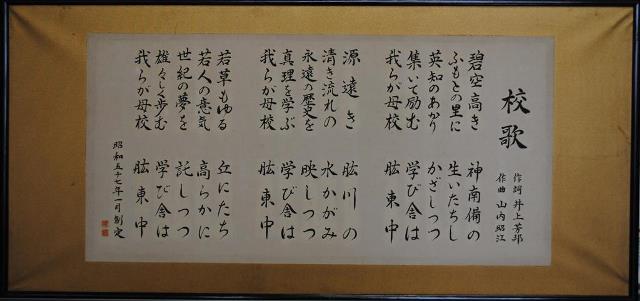 校歌
作詞 井上芳郎
作曲 山内昭江
碧空高き 神南備の
ふもとの里に 生いたちし
英知のあかり かざしつつ
集いて励む 学び舎は
我らが母校 肱東中
源遠き 肱川の
清き流れの 水かがみ
永遠の歴史を 映しつつ
真理を学ぶ 学び舎は
我らが母校 肱東中
若草もゆる 丘にたち
若人の意気 高らかに
世紀の夢を 託しつつ
雄々しく歩む 学び舎は
我らが母校 肱東中
昭和五十七年一月制定